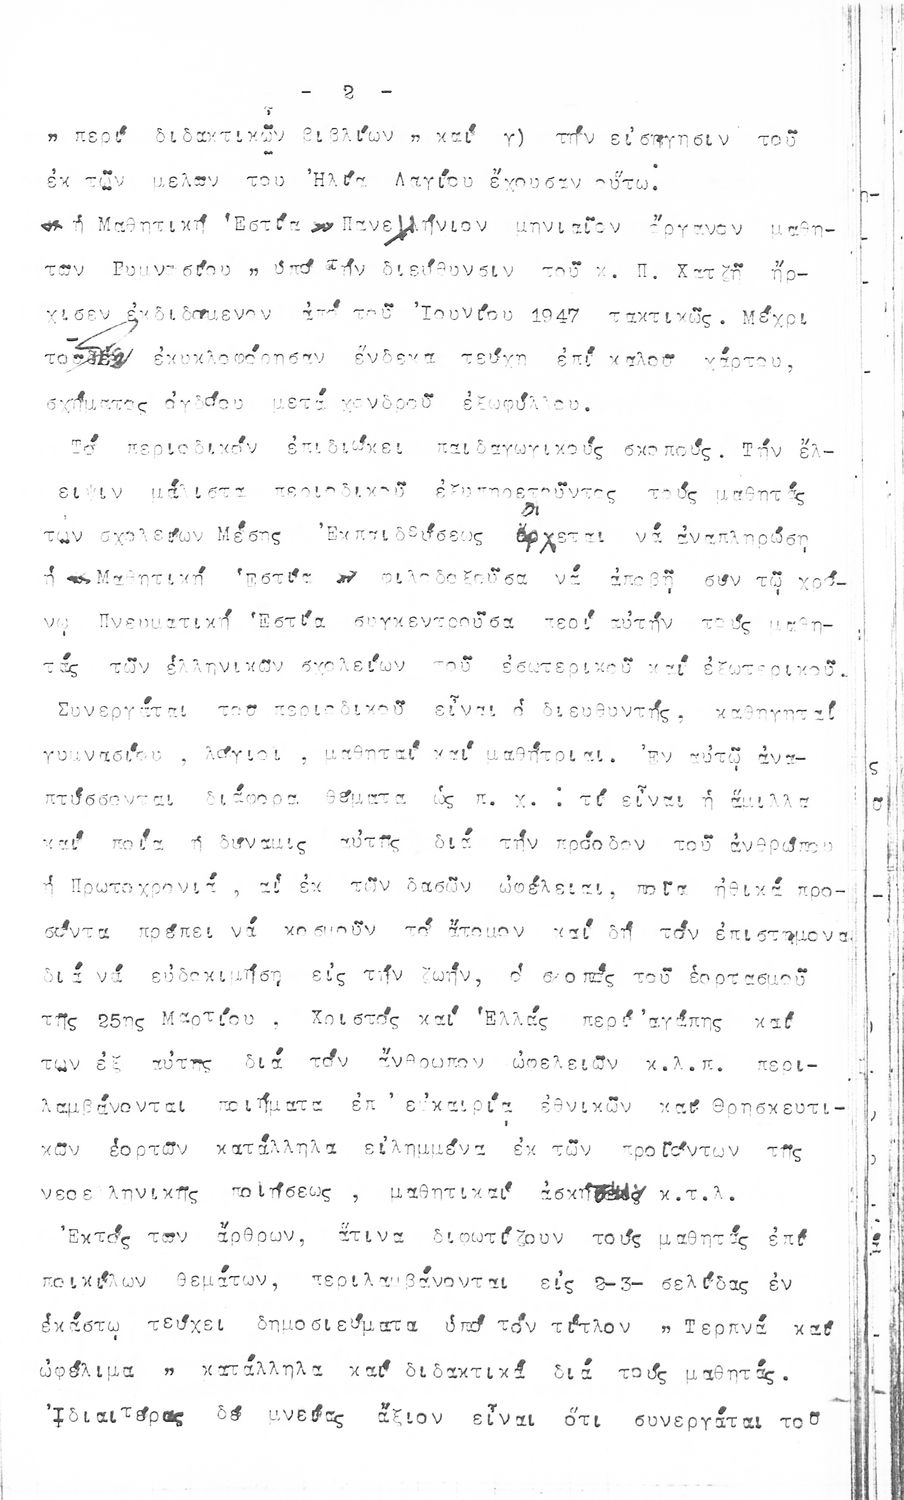 - 2 -
„ περί διδακτικῶν βιβλίων „ καί γ) τήν εἰσήγησιν τοῦ
ἐκ τῶν μελῶν του Ἠλία Λαγίου ἔχουσαν οὕτω:
« ἡ Μαθητική Ἑστία » Πανελλήνιον μηνιαῖον ὄργανον μαθη-
των Γυμνασίου „ ὑπό τήν διεύθυνσιν τοῦ κ. Π. Χατζῆ ἤρ-
χισεν ἐκδιδόμενον ἀπό τοῦ Ἰουνίου 1947 τακτικῶς. Μέχρι
ἐκυκλοφόρησαν ἕνδεκα τεύχη ἐπί καλοῦ χάρτου,
σχήματος ὀγδόου μετά χονδροῦ ἐξωφύλλου.
Τό περιοδικόν ἐπιδιώκει παιδαγωγικούς σκοπούς. Τήν ἔλ-
ειψιν μάλιστα περιοδικοῦ ἐξυπηρετοῦντος τούς μαθητάς
τῶν σχολείων Μέσης Ἐκπαιδεύσεως ἔρχεται νά ἀναπληρώσῃ
ἡ « Μαθητική Ἑστία » φιλοδοξοῦσα νά ἀποβῇ σύν τῷ χρό-
νῳ Πνευματική Ἑστία συγκεντροῦσα περί αὐτήν τούς μαθη-
τάς τῶν ἑλληνικῶν σχολείων τοῦ ἐσωτερικοῦ καί ἐξωτερικοῦ.
Συνεργάται τοῦ περιοδικοῦ εἶναι ὁ διευθυντής, καθηγηταί
γυμνασίου , λόγιοι , μαθηταί καί μαθήτριαι. Ἐν αὐτῷ ἀνα-
πτύσσονται διάφορα θέματα ὡς π. χ. : τί εἶναι ἡ ἅμιλλα
καί ποία ἡ δύναμις αὐτῆς διά τήν πρόοδον τοῦ ἀνθρώπου
ἡ Πρωτοχρονιά , αἱ ἐκ τῶν δασῶν ὠφέλειαι, ποῖα ἠθικά προ-
σόντα πρέπει νά κοσμοῦν τό ἄτομον καί δή τόν ἐπιστήμονα
διά νά εὐδοκιμήσῃ εἰς τήν ζωήν, ὁ σκοπός τοῦ ἑορτασμοῦ
τῆς 25ης Μαρτίου , Χριστός καί Ἑλλάς περί ἀγάπης καί
των ἐξ αὐτῆς διά τόν ἄνθρωπον ὠφελειῶν κ.λ.π. περι-
λαμβάνονται ποιήματα ἐπ' εὐκαιρίᾳ ἐθνικῶν καί θρησκευτι-
κῶν ἑορτῶν κατάλληλα εἰλημμένα ἐκ τῶν προϊόντων τῆς
νεοελληνικῆς ποιήσεως , μαθητικαί κ.τ.λ.
Ἐκτός των ἄρθρων, ἅτινα διαφωτίζουν τούς μαθητάς ἐπί
ποικίλων θεμάτων, περιλαμβάνονται εἰς 2-3- σελίδας ἐν
ἑκάστῳ τεύχει δημοσιεύματα ὑπό τόν τίτλον „ Τερπνά καί
ὠφέλιμα „ κατάλληλα καί διδακτικά διά τούς μαθητάς.
Ἰδιαιτέρας δέ μνείας ἄξιον εἶναι ὅτι συνεργάται τοῦ